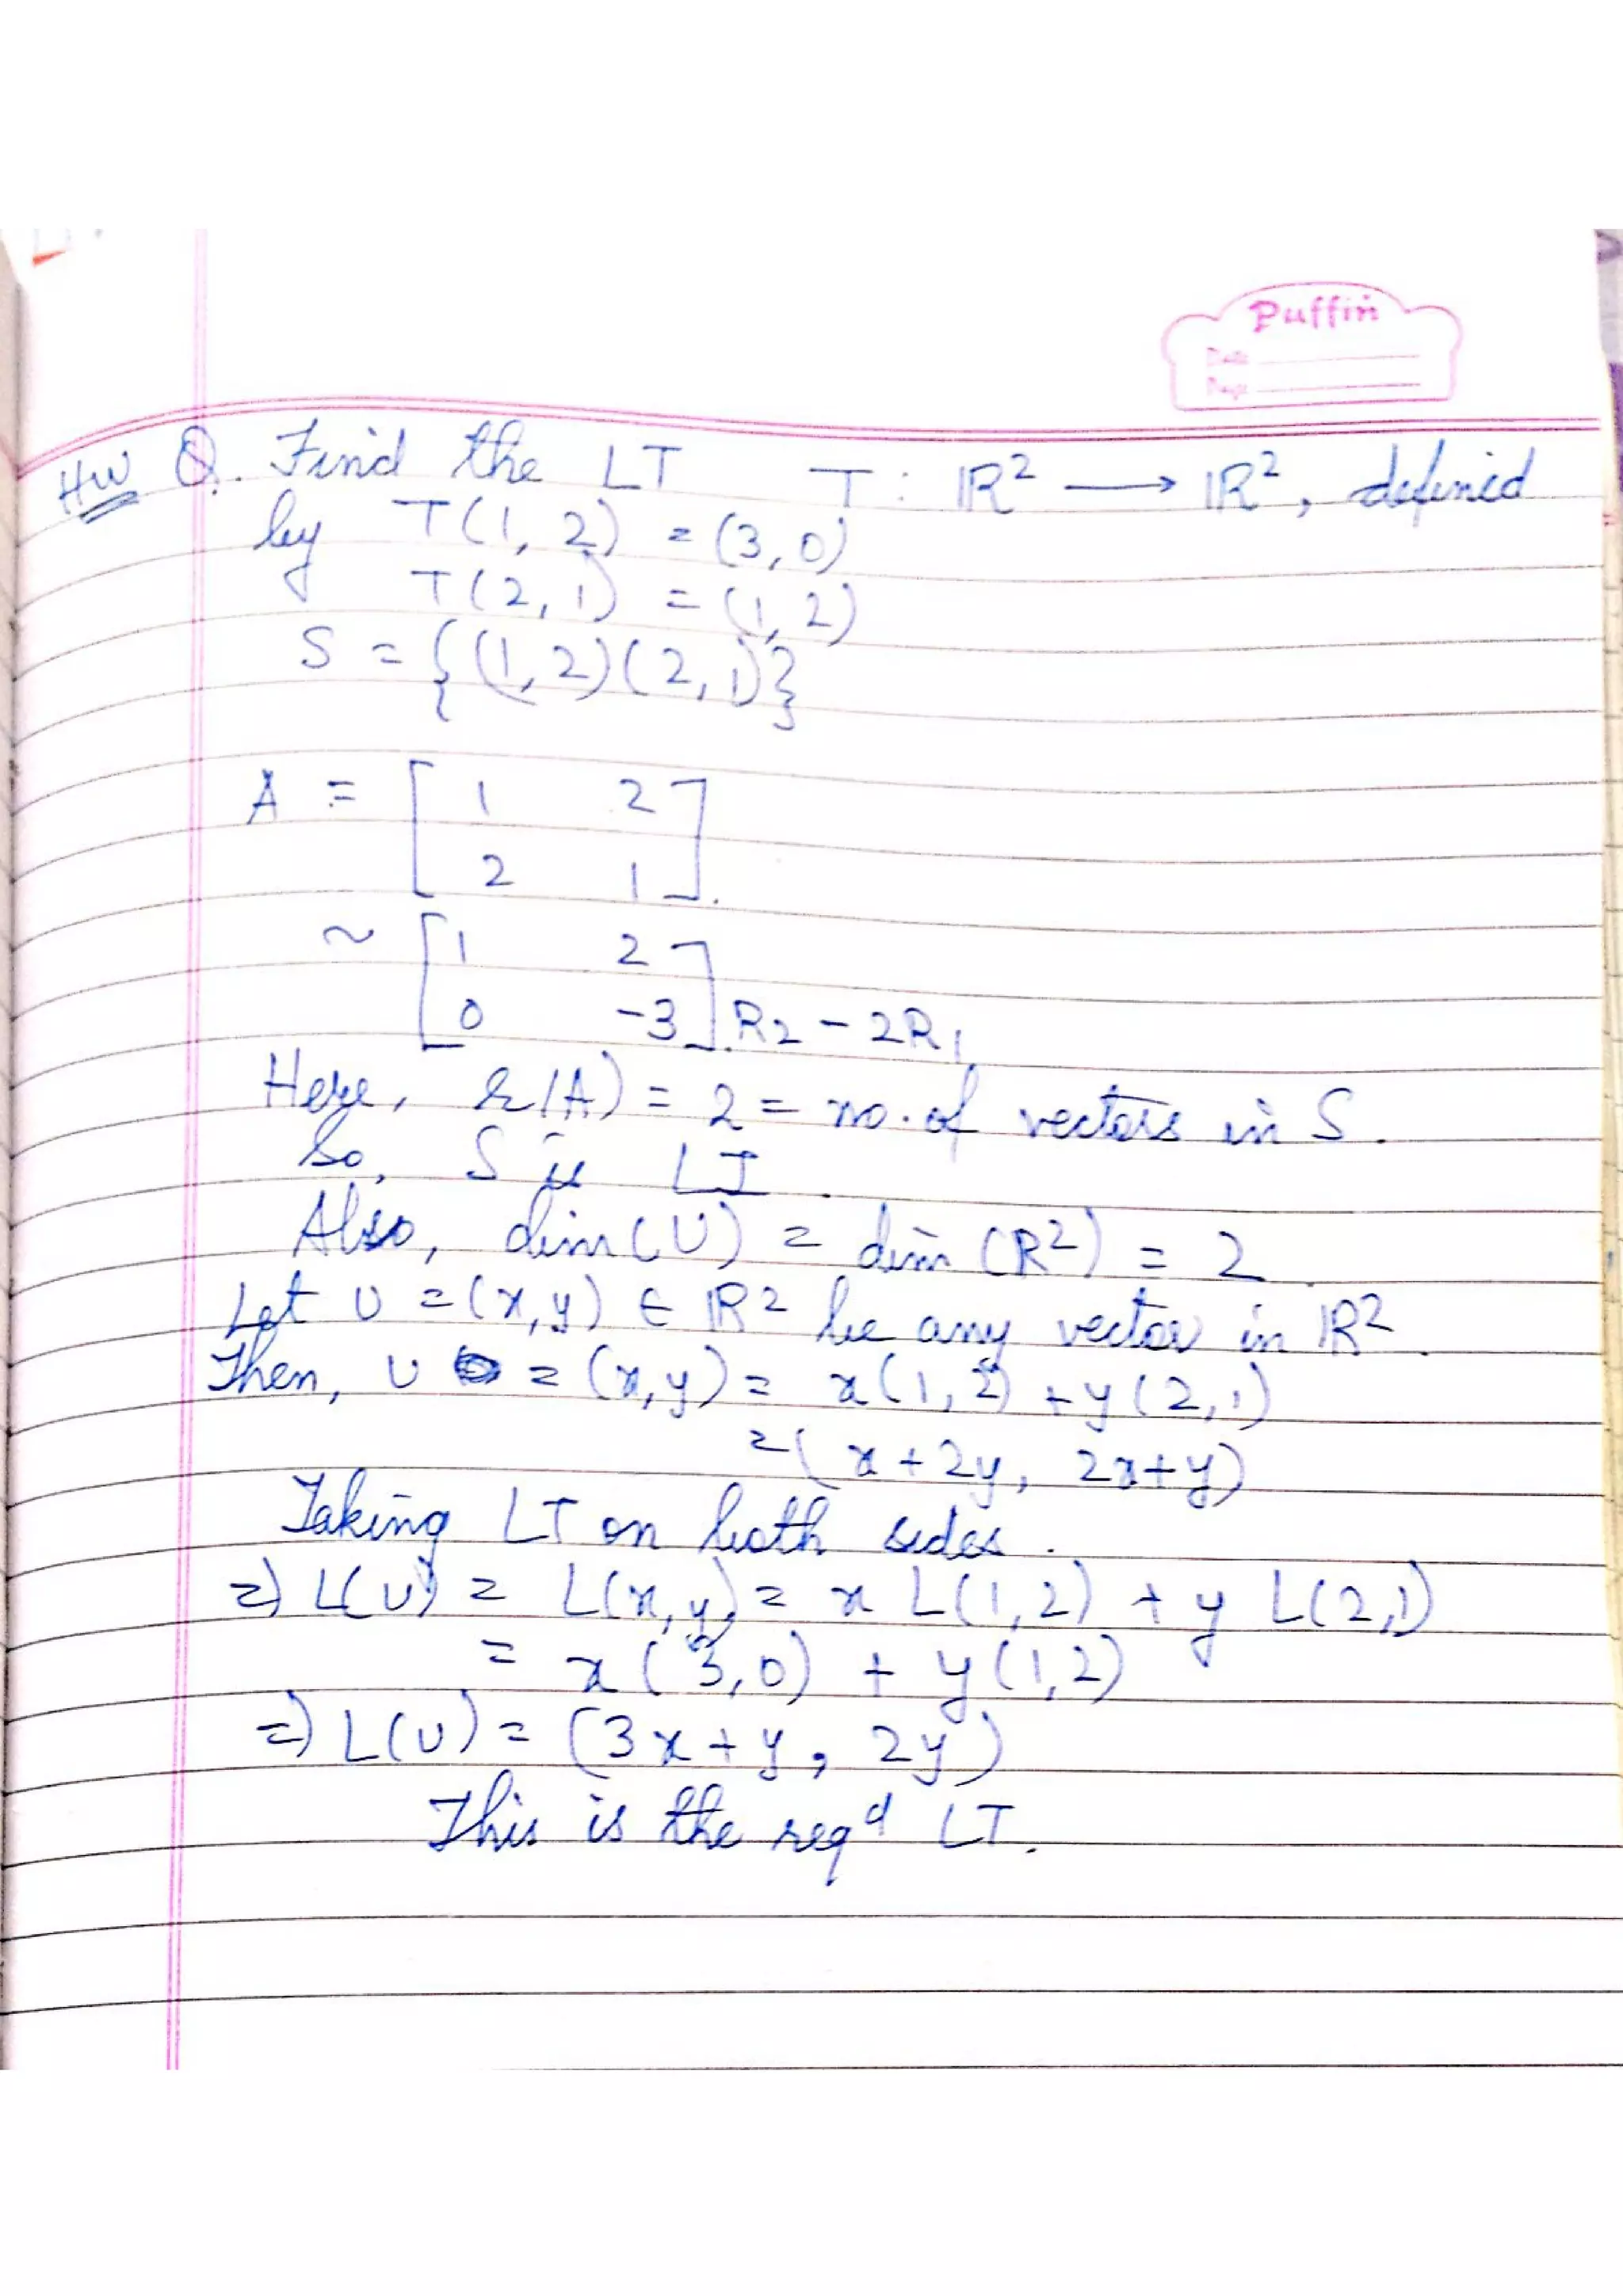 Puffin
Date
Page
HW Q. Find the LT T : ℝ² → ℝ², defined
by T(1, 2) = (3, 0)
T(2, 1) = (1, 2)
S = {(1, 2)(2, 1)}
A = [1 2
2 1].
~ [1 2
0 -3] R2 - 2R1
Here, r(A) = 2 = no. of vectors in S.
So, S is LI.
Also, dim(U) = dim(R²) = 2.
Let U = (x, y) ∈ ℝ² be any vector in ℝ².
Then, U = (x, y) = x(1, 2) + y(2, 1)
= (x + 2y, 2x + y)
Taking LT on both sides.
⇒ L(U) = L(x, y) = x L(1, 2) + y L(2, 1)
= x(3, 0) + y(1, 2)
⇒ L(U) = (3x + y, 2y)
This is the reqd LT.